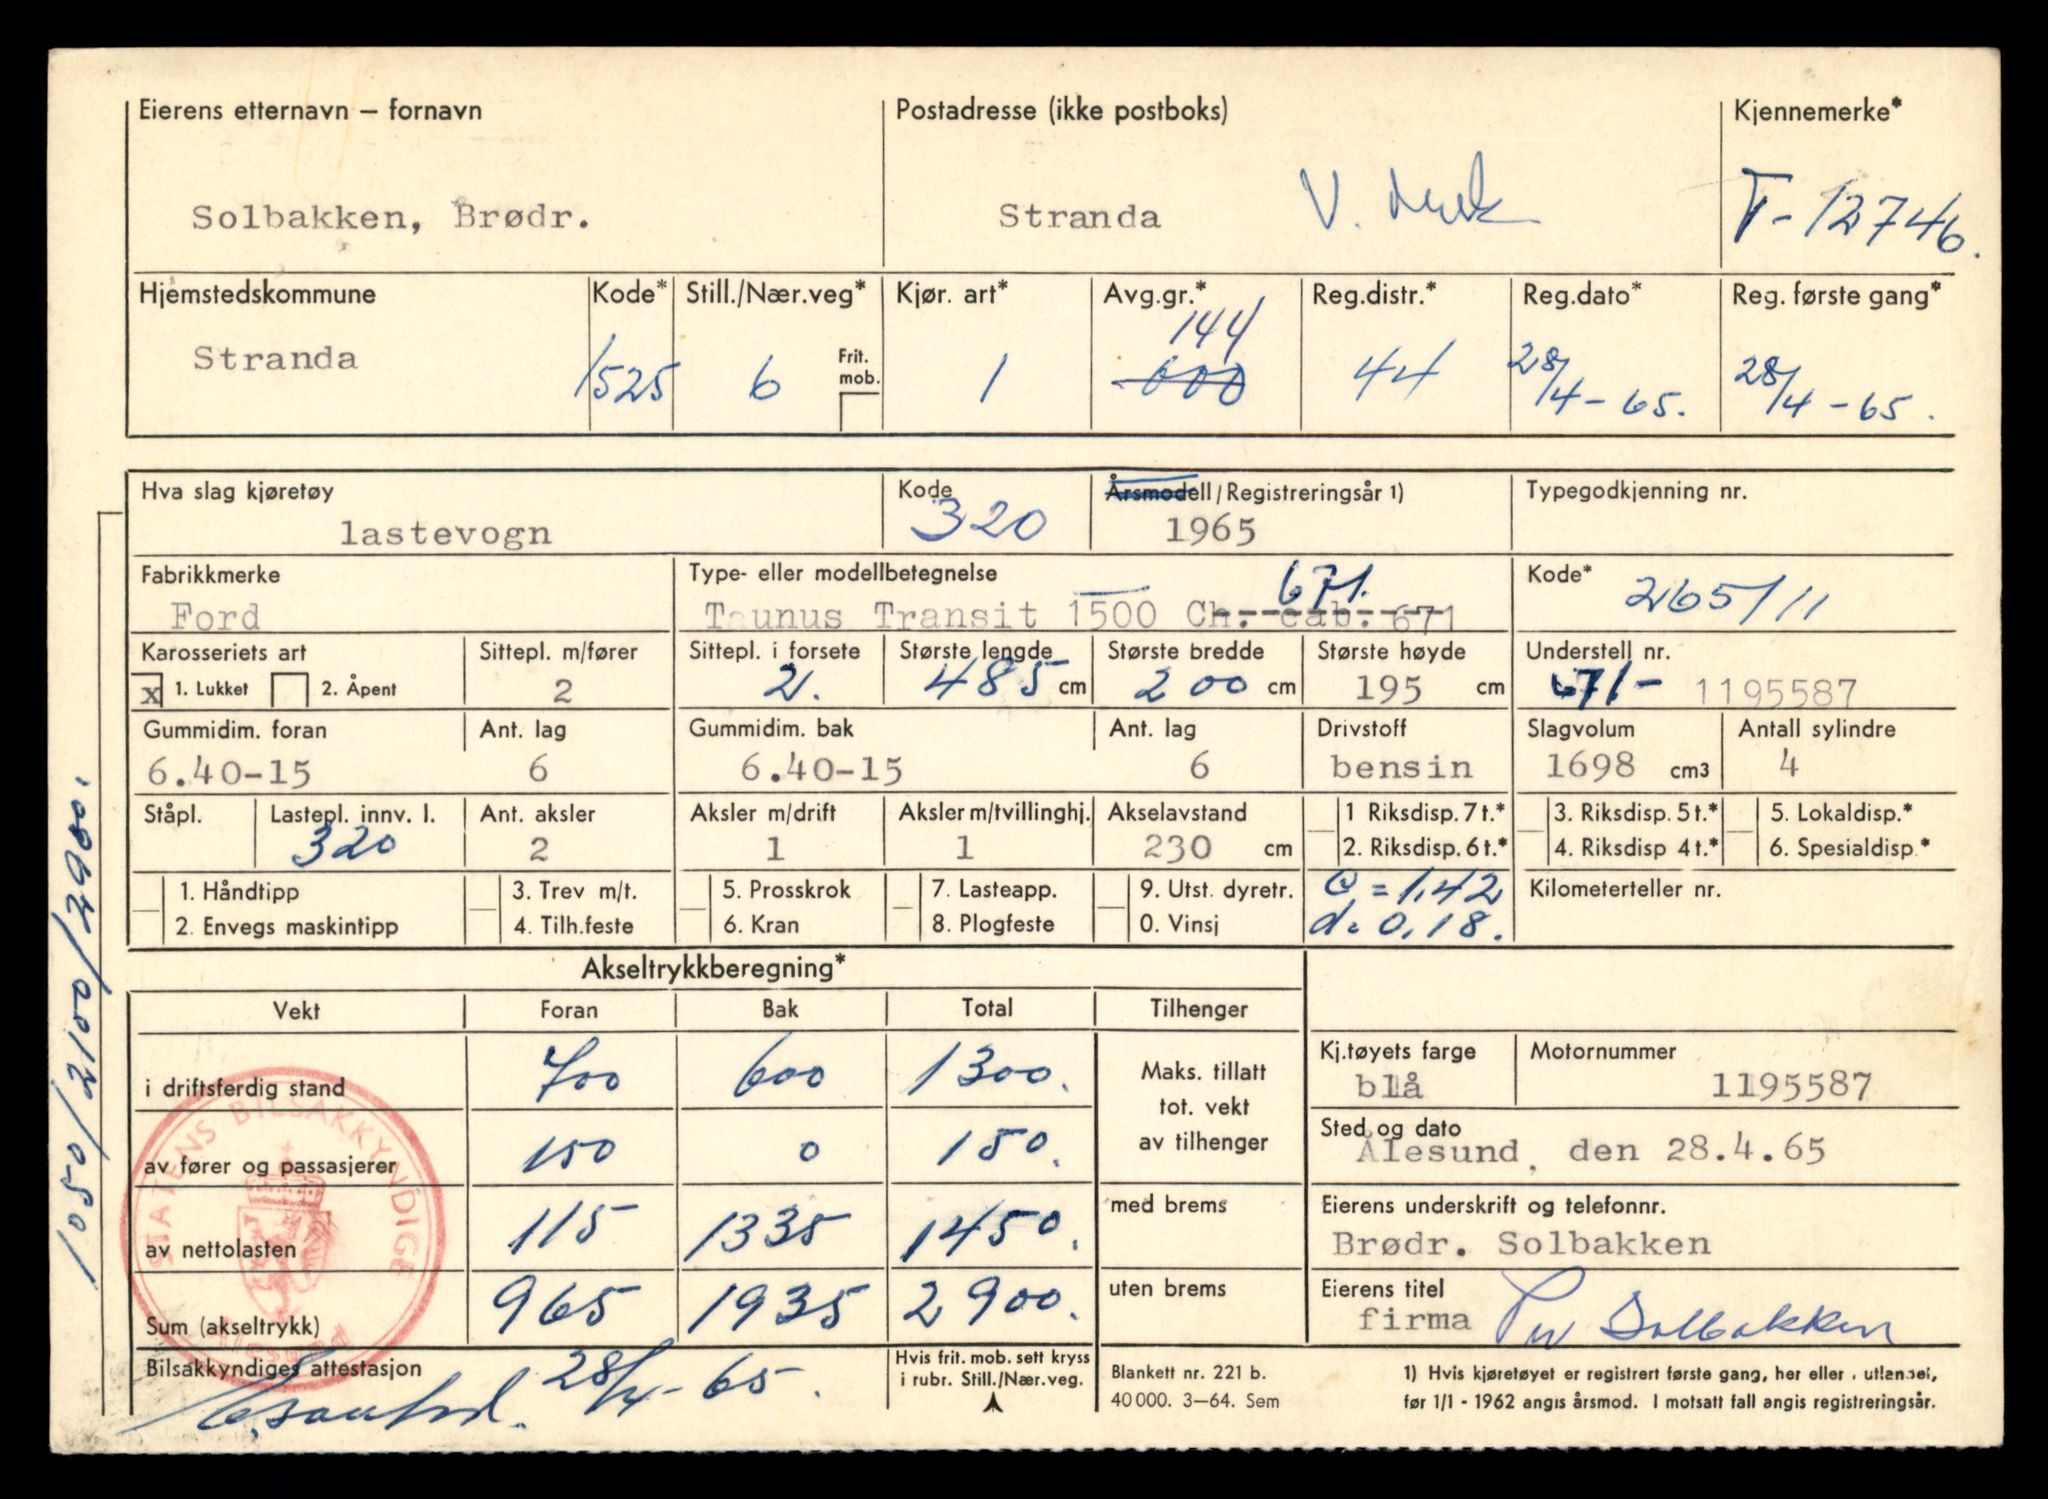 Eierens etternavn – fornavn
Solbakken, Brødr.
Postadresse (ikke postboks)
Stranda V.
Kjennemerke*
T-12746.
Hjemstedskommune
Stranda
Kode*
1525
Still./Nær.veg*
6
Frit. mob.
Kjør. art*
1
Avg.gr.*
144
600
Reg.distr.*
44
Reg.dato*
28/4-65.
Reg. første gang*
28/4-65.
Hva slag kjøretøy
lastevogn
Kode
320
Årsmodell/Registreringsår 1)
1965
Typegodkjenning nr.
Fabrikkmerke
Ford
Type- eller modellbetegnelse
671.
Taunus Transit 1500 Ch. cab. 671
Kode*
265/11
Karosseriets art
x 1. Lukket 2. Åpent
Sittepl. m/fører
2
Sittepl. i forsete
2.
Største lengde
485 cm
Største bredde
200 cm
Største høyde
195 cm
Understell nr.
671- 1195587
Gummidim. foran
6.40-15
Ant. lag
6
Gummidim. bak
6.40-15
Ant. lag
6
Drivstoff
bensin
Slagvolum
1698 cm3
Antall sylindre
4
Ståpl.
Lastepl. innv. l.
320
Ant. aksler
2
Aksler m/drift
1
Aksler m/tvillinghj.
1
Akselavstand
230 cm
1 Riksdisp. 7 t.*
2. Riksdisp. 6 t.*
3. Riksdisp. 5 t.*
4. Riksdisp 4 t.*
5. Lokaldisp.*
6. Spesialdisp*
1. Håndtipp
2. Envegs maskintipp
3. Trev m/t.
4. Tilh.feste
5. Prosskrok
6. Kran
7. Lasteapp.
8. Plogfeste
9. Utst. dyretr.
0. Vinsj
a = 1,42
d = 0,18.
Kilometerteller nr.
Akseltrykkberegning*
Vekt Foran Bak Total Tilhenger
i driftsferdig stand 700 600 1300.
av fører og passasjerer 150 0 150.
av nettolasten 115 1335 1450.
Sum (akseltrykk) 965 1935 2900.
Maks. tillatt
tot. vekt
av tilhenger
med brems
uten brems
Kj.tøyets farge
blå
Motornummer
1195587
Sted og dato
Ålesund, den 28.4.65
Eierens underskrift og telefonnr.
Brødr. Solbakken
Eierens titel
firma
Per Solbakken
Bilsakkyndiges attestasjon
28/4-65.
Hvis frit. mob. sett kryss
i rubr. Still./Nær.veg.
Blankett nr. 221 b.
40 000. 3–64. Sem
1) Hvis kjøretøyet er registrert første gang, her eller i utlandet,
før 1/1 - 1962 angis årsmod. I motsatt fall angis registreringsår.
STATENS BILSAKKYNDIGE
1050/2100/2980.